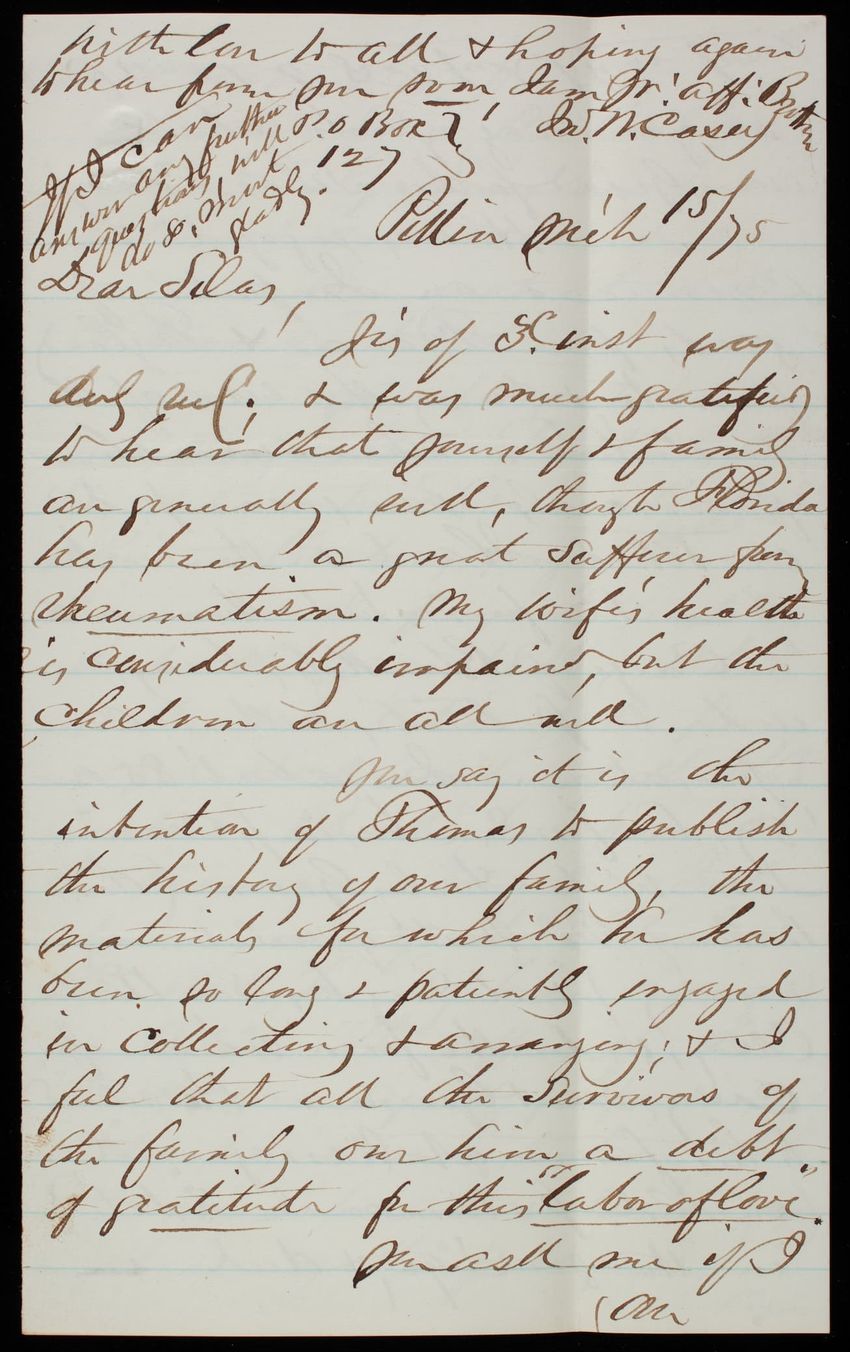 with love to all & hoping again
to hear from you soon, I am Yr. aff. Brother
Jn. N. Casey
P.O Box
127
If I can
answer any further
questions, will
do so, most
gladly.
Pekin Mch 15/75
Dear Silas,
Yr's of 3d. inst was
duly rec'd; & was much gratified
to hear that yourself & family
are generally well, though Florida
has been a great sufferer from
rheumatism. My wife's health
is considerably impaired, but the
children are all well.
You say it is the
intention of Thomas to publish
the history of our family, the
materials for which he has
been so long & patiently engaged
in collecting & arranging; & I
feel that all the survivors of
the family owe him a debt
of gratitude for this "labor of love".
You ask me if I
am